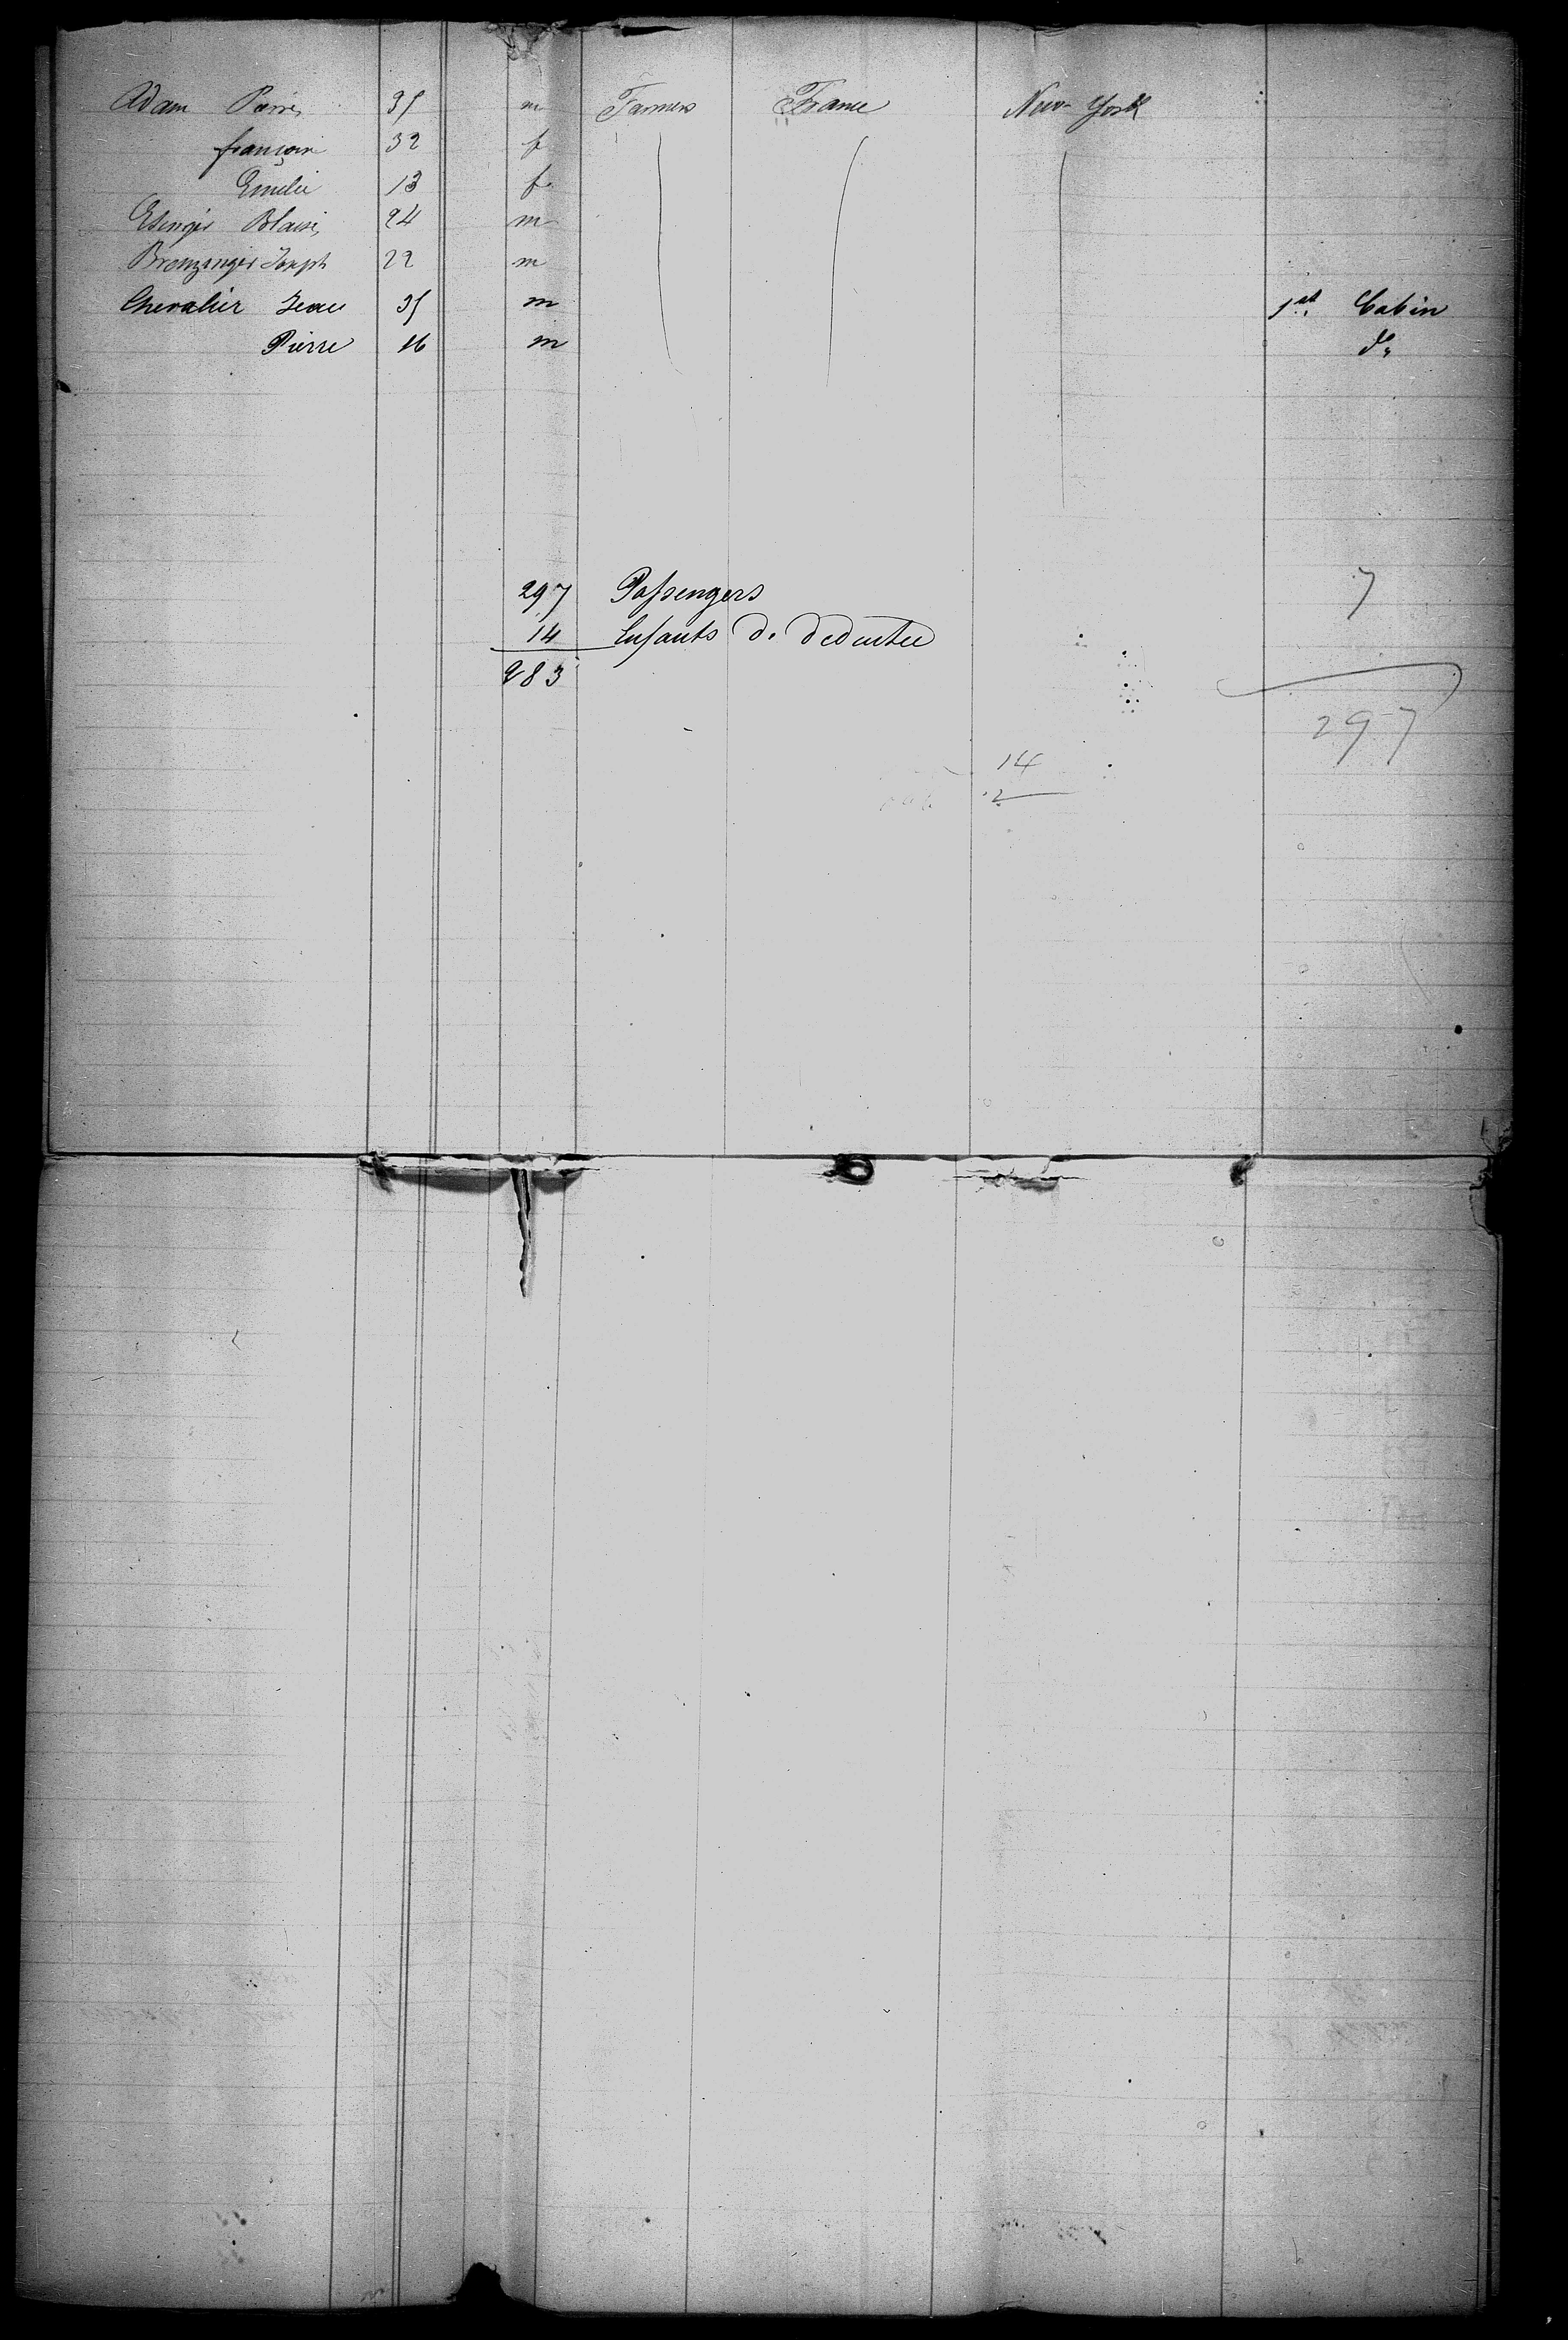 Adam Pierre 35 m Farmers France New-York
françoise 32 f
Emelie 13 f
Blaise 24 m
Joseph 22 m
Chevalier Jean 35 m 1st Cabin
Pierre 16 m do
297 Passengers 7
14 Enfants de
283
297
14
2